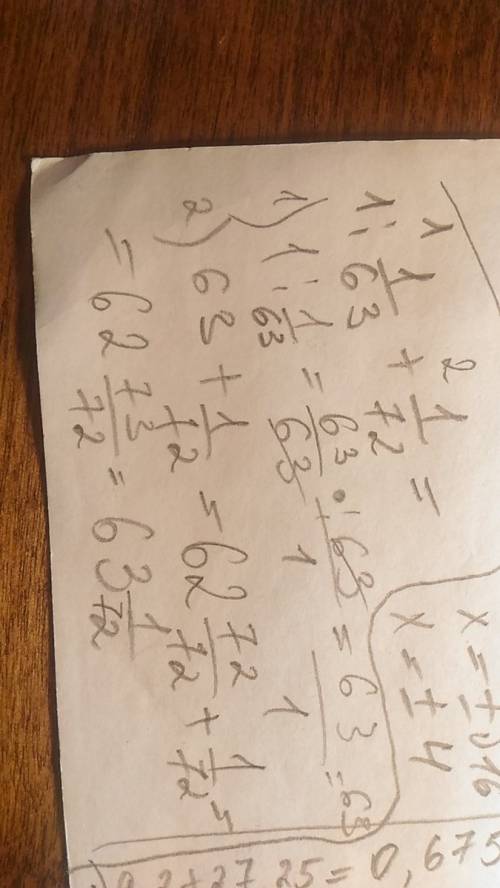 1 2
1 : 1/63 + 1/72 =
1) 1 : 1/63 = 63/63 · 63/1 = 63/1 = 63
2) 63 + 1/72 = 62 72/72 + 1/72 =
= 62 73/72 = 63 1/72
x = ±√16
x = ± 4
27 25 = 0,675